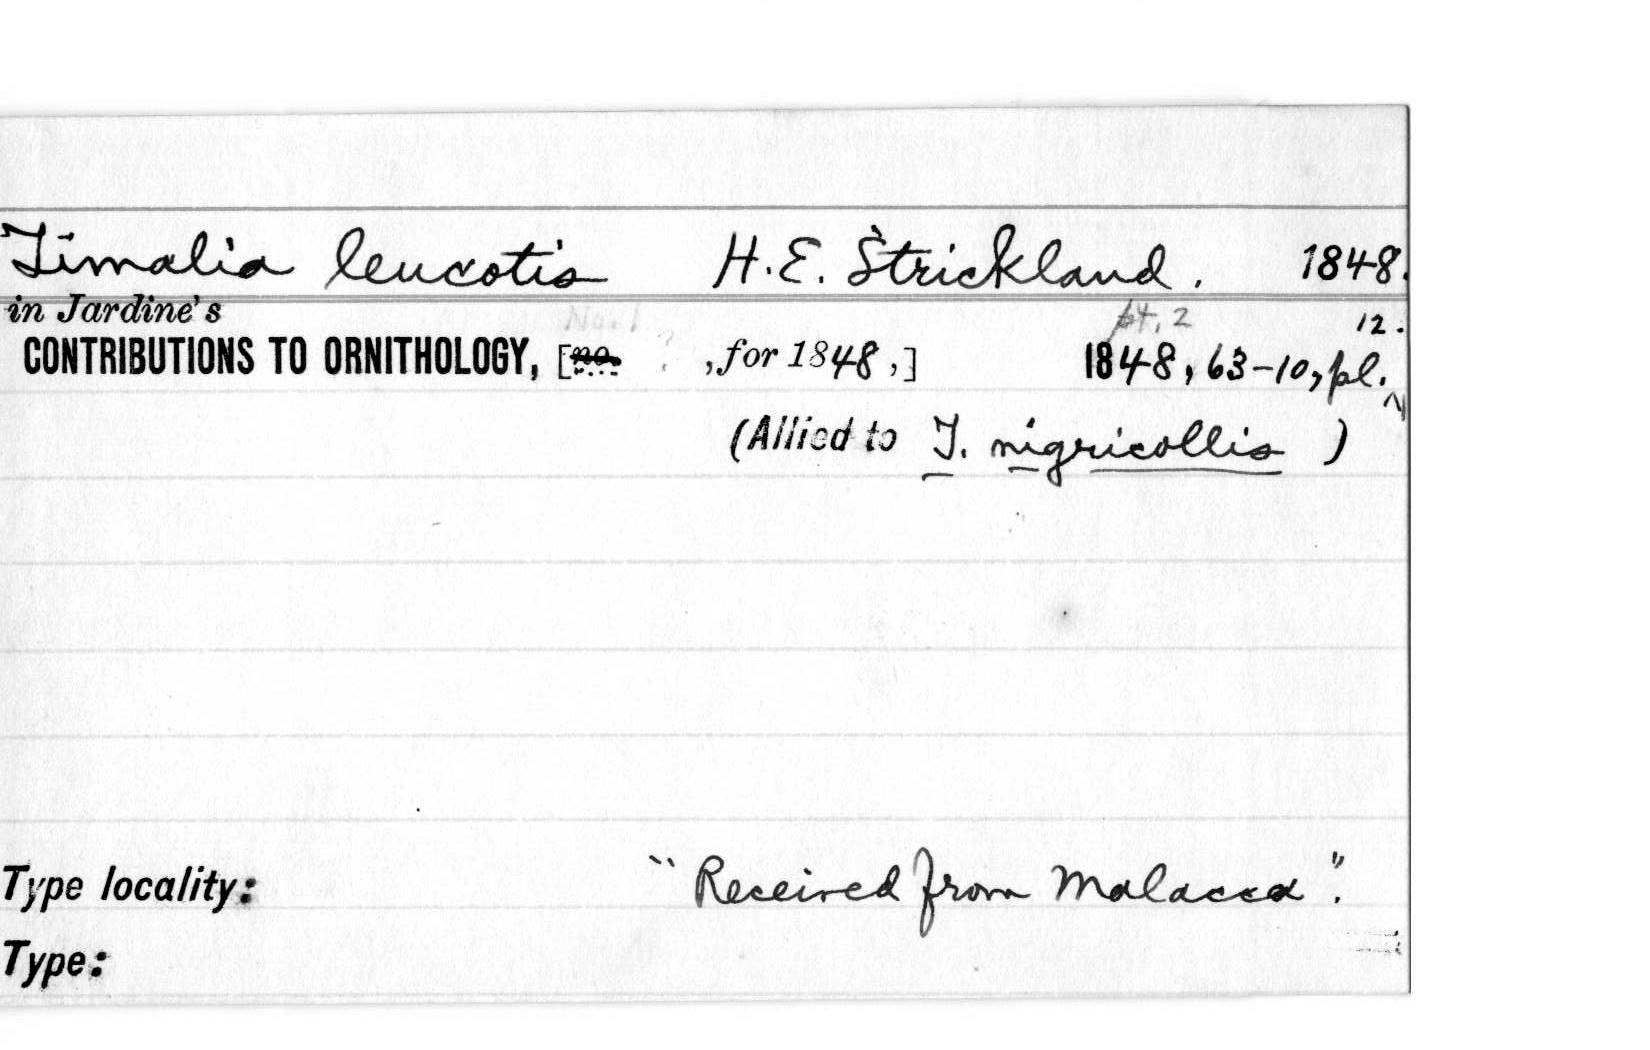 Timalia leucotis H.E. Strickland. 1848.
in Jardine's
No. 1 pt. 2 12.
CONTRIBUTIONS TO ORNITHOLOGY, [no. ? , for 1848,] 1848, 63-10, pl. ^
(Allied to T. nigricollis )
Type locality: "Received from Malacca".
Type: